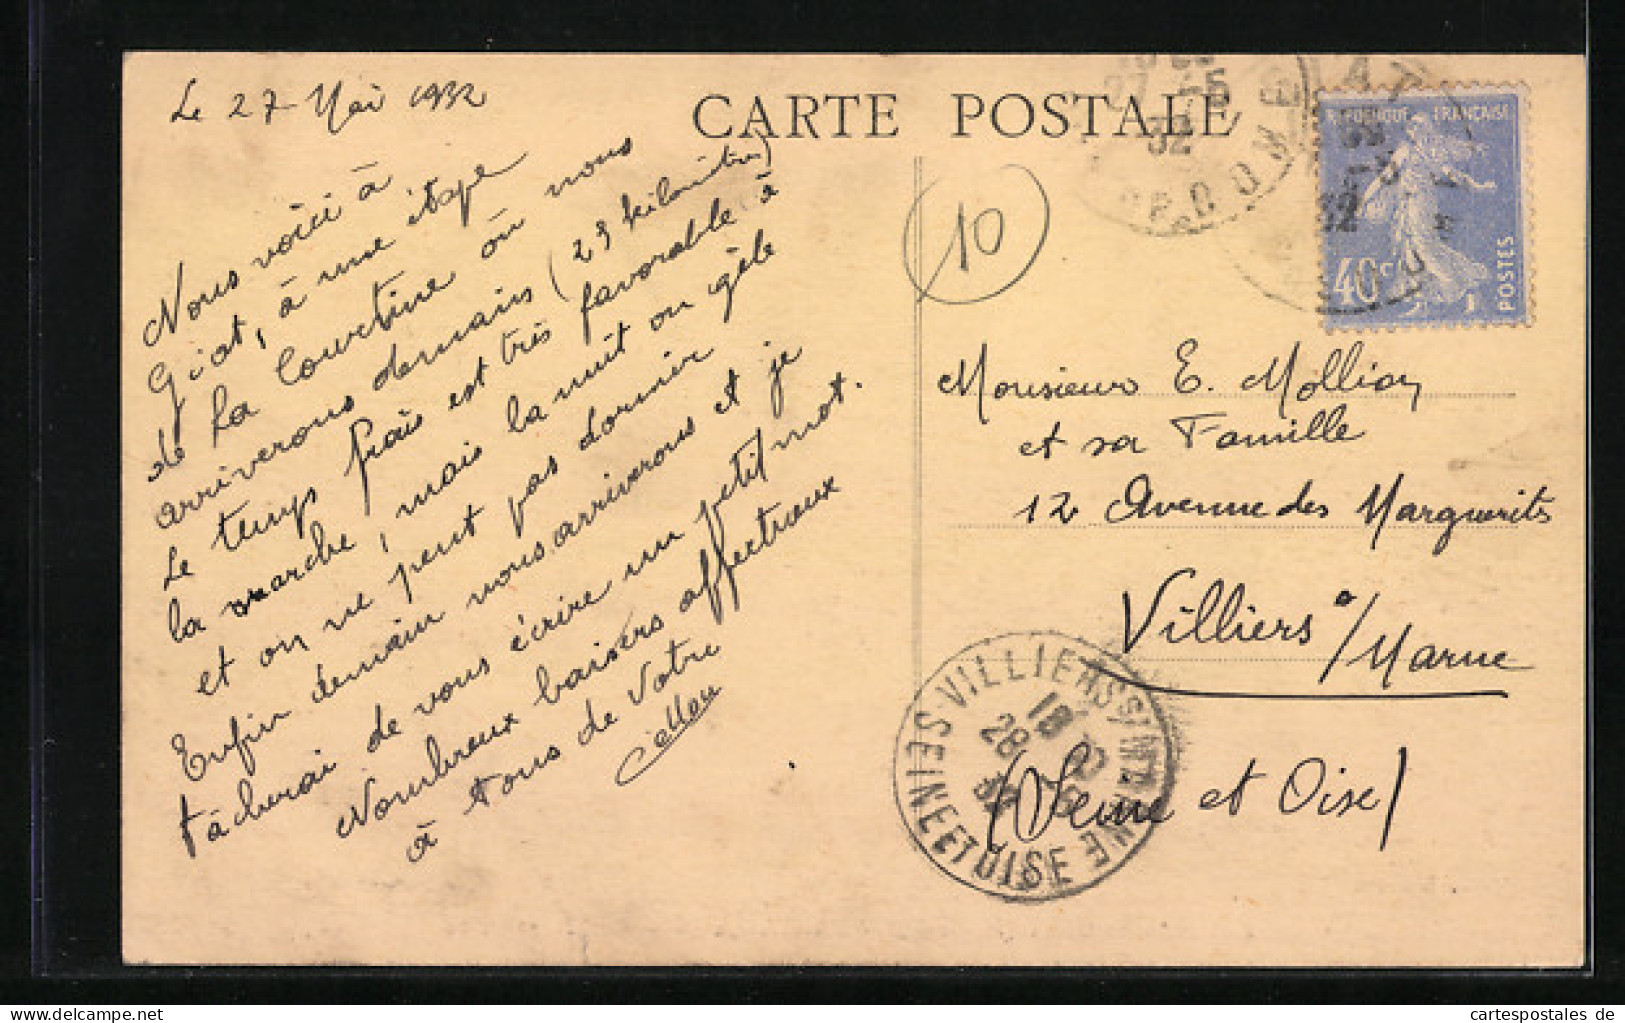 Le 27 Mai 1932
CARTE POSTALE
Nous voici à
Giat, à une étape
de La Courtine où nous
arriverons demain (23 kilomètres)
Le temps frais est très favorable à
la marche, mais la nuit on gèle
et on ne peut pas dormir
Enfin demain nous arriverons et je
tâcherai de vous écrire un petit mot.
Nombreux baisers affectueux
à tous de Votre
10
27 -5
32
GIAT
PUY-DE-DOME
REPUBLIQUE FRANÇAISE
40c
POSTES
Monsieur E. Mollion
et sa Famille
12 Avenue des Marguerits
Villiers s/Marne
(Seine et Oise)
VILLIERS S/MARNE
SEINE ET OISE
18
28 -5
32
cartespostales de